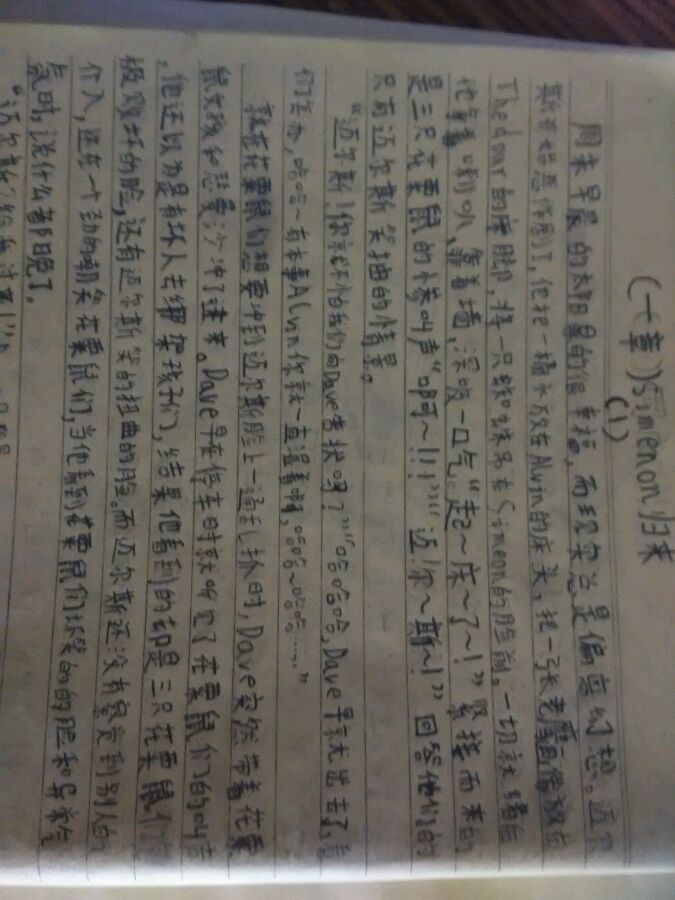 (一章)Simenon归来
(1)
周末早晨的太阳是的很幸福，而现实总是偏离幻想。迈尔
斯开始恶作剧了，他把一桶水放在Alvin的床头，把一张老鹰图像放在
Thedour的床脚，将一只蜘蛛吊在Simeon的脸前。一切就绪后
他拿着喇叭，靠着墙，深吸一口气“起～床～了～！”紧接而来的
是三只花栗鼠的惨叫声“啊～！！！”“迈！尔～斯～！”回答他们的
只有迈尔斯笑抽的情景。
“迈尔斯！你就不怕我们向Dave告状吗？”“哈哈哈，Dave早就出去了，看
们怎办，哈哈～有本事Alvin你就一直湿着啊，哈哈～哈哈……”
就在花栗鼠们想要冲到迈尔斯脸上一通乱抓时，Dave突然带着花栗
鼠女孩和冲了进来。Dave早在停车时就听见了花栗鼠们的叫声
，他还以为是有坏人去绑架孩子们，结果他看到的却是三只花栗鼠们
极难坏的脸，还有迈尔斯笑的扭曲的脸。而迈尔斯还没有察觉到别人的
介入，还在一个劲的嘲笑花栗鼠们，当他看到花栗鼠们坏笑的的脸和异常气
氛时，说什么都晚了。